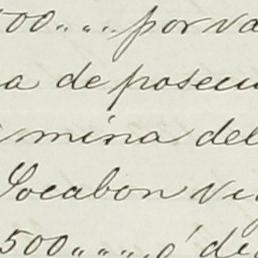 500 „ „ por va
a de posecu
mina del
Socabon vi
500 „ „ „ ó de